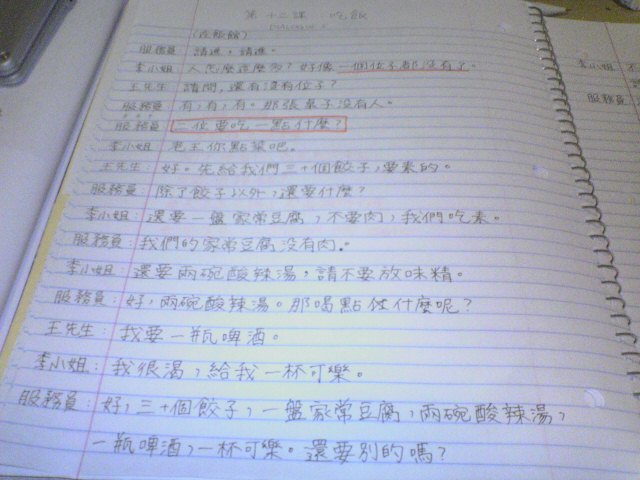 第十二課：吃飯
DIALOGUE I
(在飯館)
服務員：請進，請進。
李小姐：人怎麼這麼多？好像一個位子都沒有了。
王先生：請問，還有沒有位子？
服務員：有，有，有。那張桌子沒有人。
服務員：二位要吃一點什麼？
李小姐：老王你點菜吧。
王先生：好。先給我們三十個餃子，要素的。
服務員：除了餃子以外，還要什麼？
李小姐：還要一盤家常豆腐，不要肉，我們吃素。
服務員：我們的家常豆腐沒有肉。
李小姐：還要兩碗酸辣湯，請不要放味精。
服務員：好，兩碗酸辣湯。那喝點什麼呢？
王先生：我要一瓶啤酒。
李小姐：我很渴，給我一杯可樂。
服務員：好，三十個餃子，一盤家常豆腐，兩碗酸辣湯，
一瓶啤酒，一杯可樂。還要別的嗎？
李小姐：不
服務員